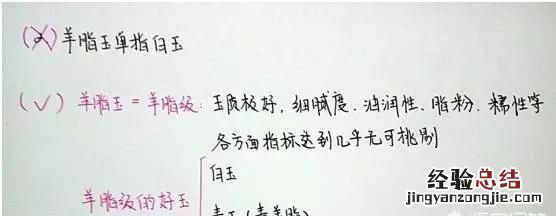 (×) 羊脂玉单指白玉
(✓) 羊脂玉=羊脂级: 玉质极好,细腻度、油润性、脂粉、糯性等
各方面指标达到几乎无可挑剔
羊脂级的好玉
白玉
经验总结
jingyanzongjie.com